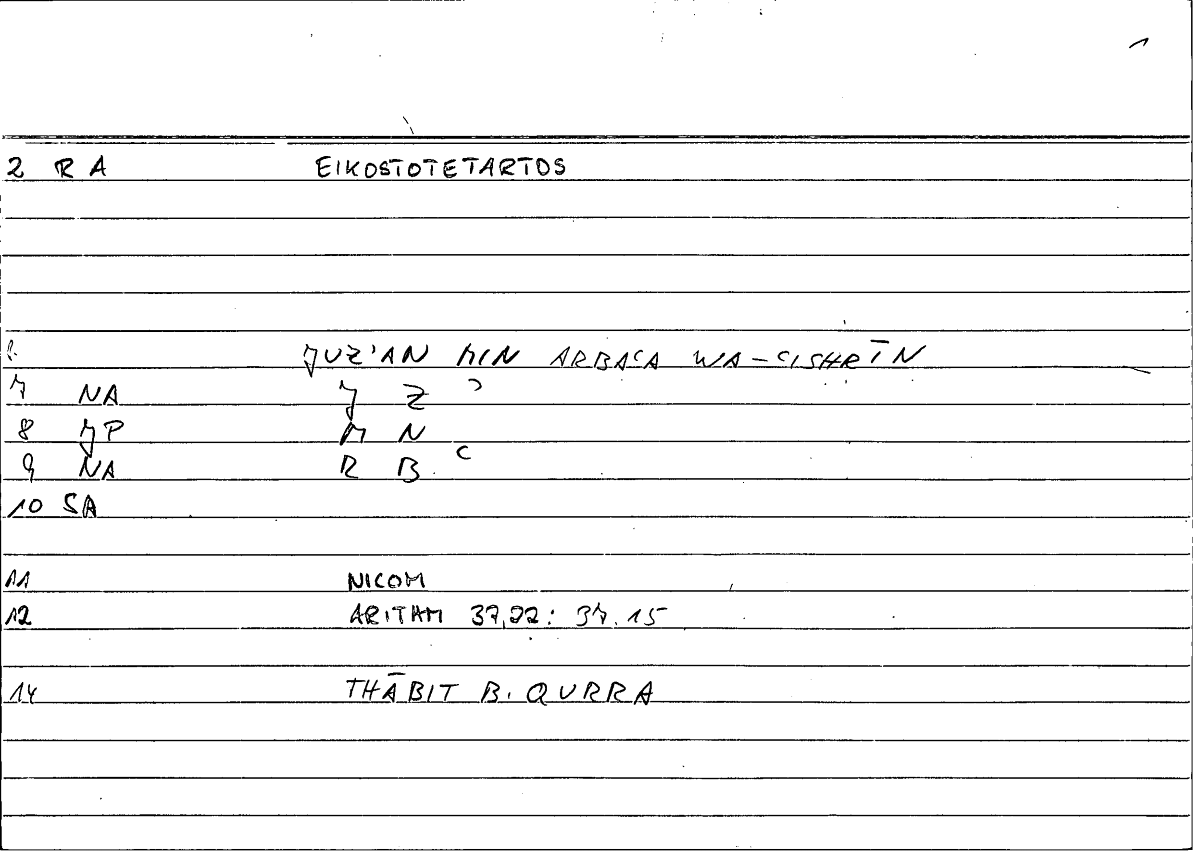 1
2 RA EIKOSTOTETARTOS
JUZ'AN MIN ARBAʿA WA-ʿISHRĪN
7 NA J Z ʾ
8 JP M N
9 NA R B ʿ
10 SA
11 NICOM
12 ARITHM 37,22: 37.15
14 THĀBIT B. QURRA